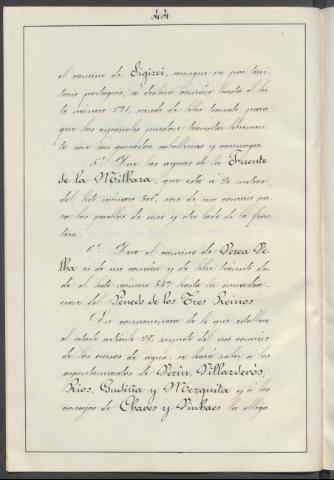 44
el camino de Sigirei, aunque va por terri-
torio portugués, se declara común hasta el hi-
to número 271, siendo de libre transito, para
que los españoles puedan transitar libremen-
te con sus ganados, caballerias y carruages.
5º Que las aguas de la Fuente
de la Milhara, que está á 20 metros
del hito número 306, son de uso común pa-
ra los pueblos de uno y otro lado de la fron-
tera.
6º Que el camino de Verea Ve-
lha es de uso común y de libre tránsito des-
de el hito número 347 hasta la inmedia-
ción del Penedo de los Tres Reinos.
En consecuencia de lo que establece
el citado artículo 28, respecto del uso común
de los cursos de agua, se hará saber á los
ayuntamientos de Verin, Villardevós,
Rios, Gudiña y Mezquita y á los
concejos de Chaves y Vinhaes la obliga-